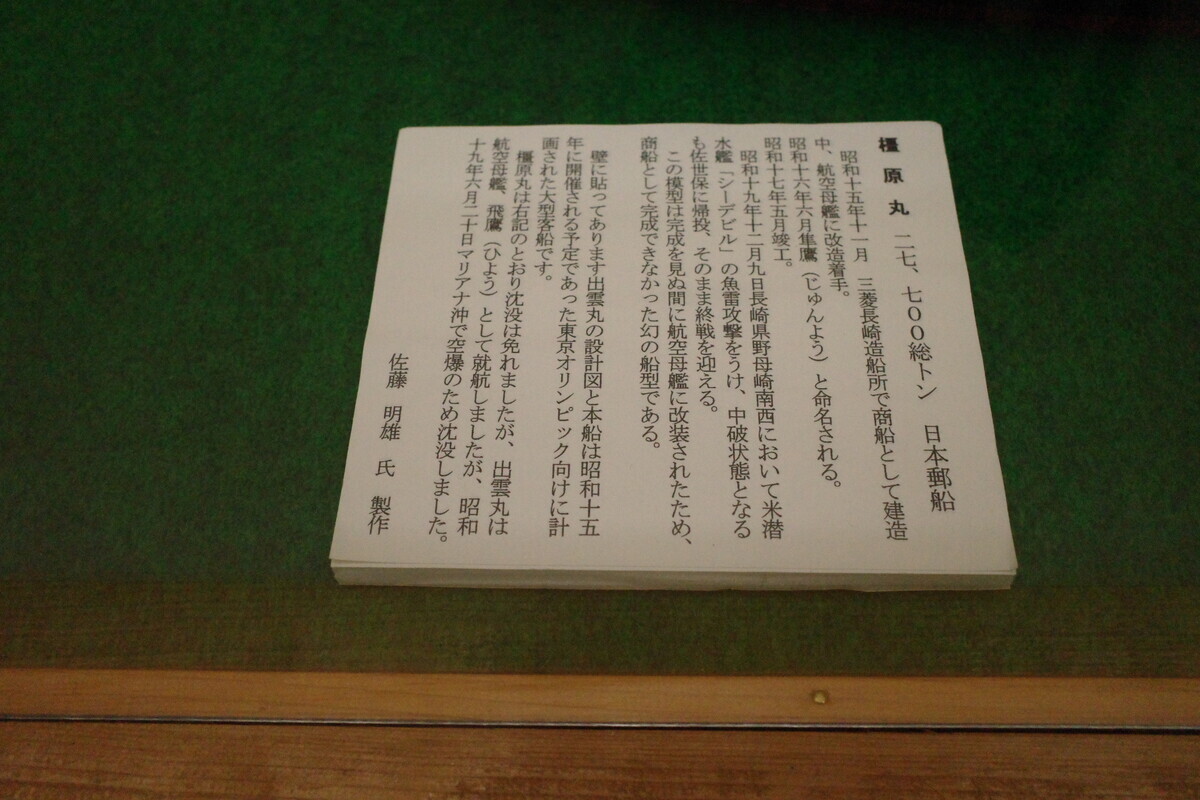 橿原丸　二七、七〇〇総トン　日本郵船
昭和十五年十一月　三菱長崎造船所で商船として建造
中、航空母艦に改造着手。
昭和十六年六月隼鷹（じゅんよう）と命名される。
昭和十七年五月竣工。
昭和十九年十二月九日長崎県野母崎南西において米潜
水艦「シーデビル」の魚雷攻撃をうけ、中破状態となる
も佐世保に帰投、そのまま終戦を迎える。
この模型は完成を見ぬ間に航空母艦に改装されたため、
商船として完成できなかった幻の船型である。
壁に貼ってあります出雲丸の設計図と本船は昭和十五
年に開催される予定であった東京オリンピック向けに計
画された大型客船です。
橿原丸は右記のとおり沈没は免れましたが、出雲丸は
航空母艦、飛鷹（ひよう）として就航しましたが、昭和
十九年六月二十日マリアナ沖で空爆のため沈没しました。
佐藤　明雄　氏　製作